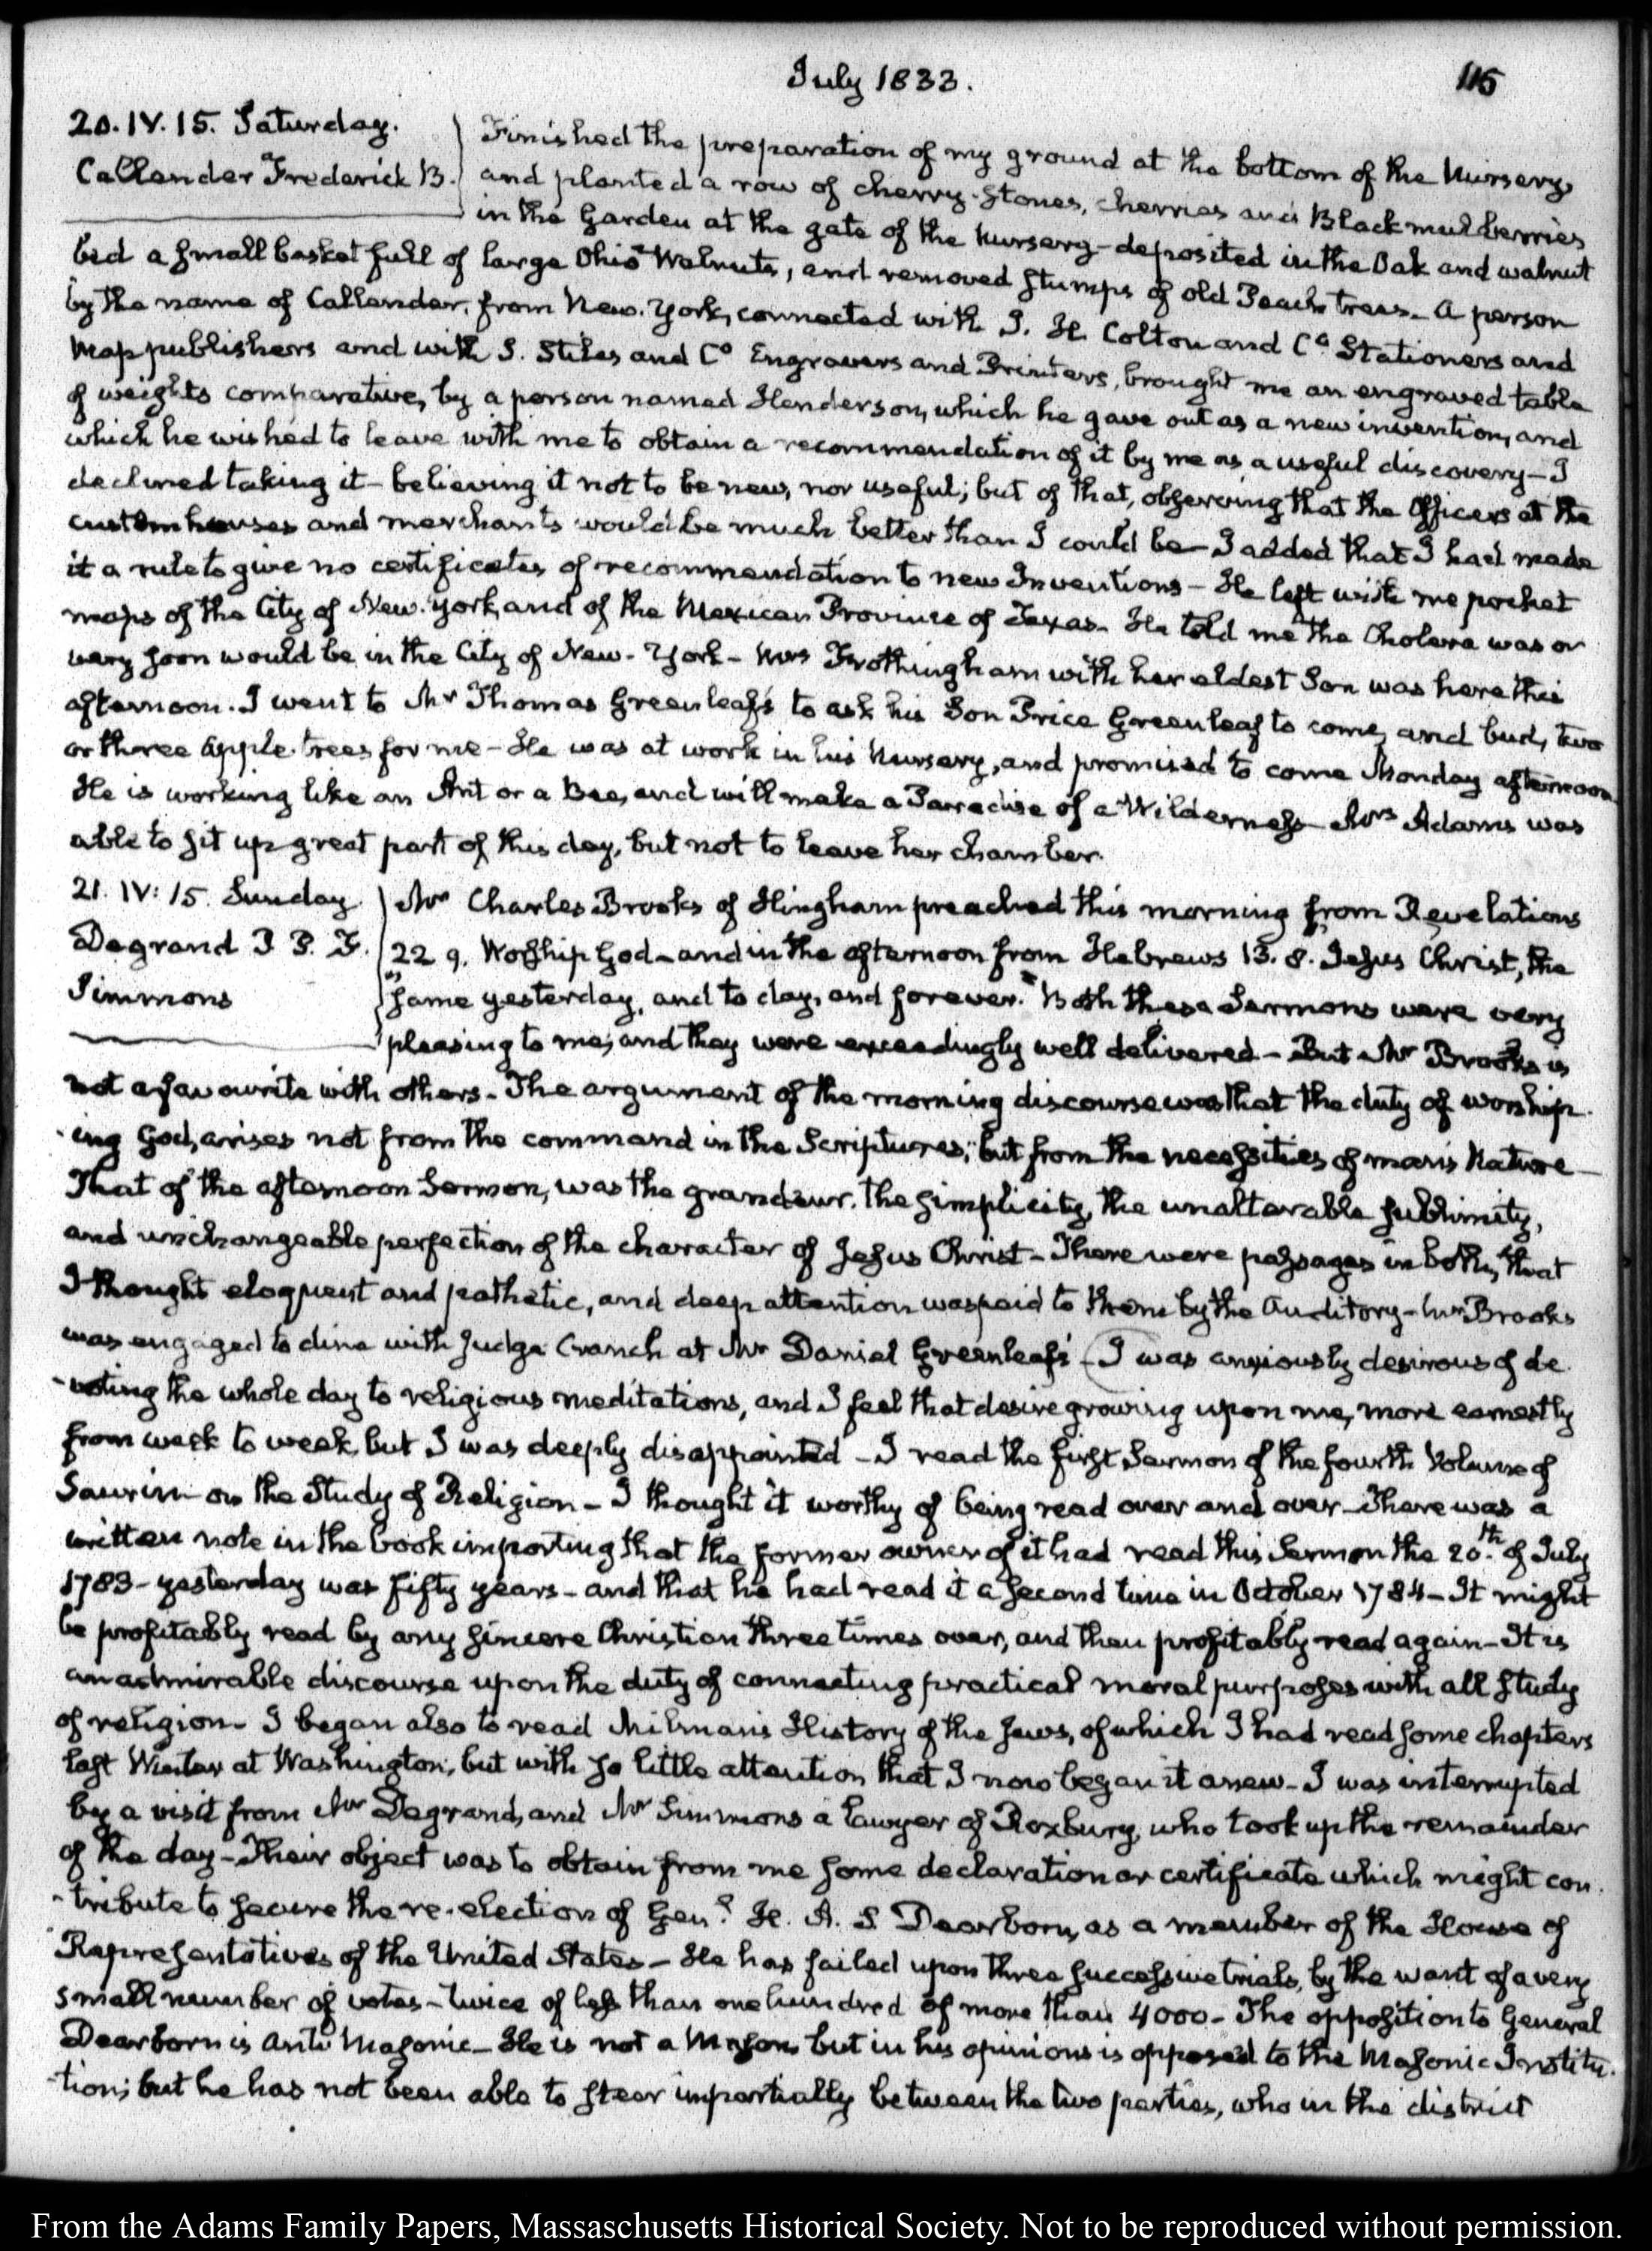 July 1833.
115
20. IV. 15. Saturday.
Callender Frederick B.
Finished the preparation of my ground at the bottom of the Nursery,
and planted a row of cherry-stones, cherries and Black mulberries
in the Garden at the gate of the Nursery - deposited in the Oak and walnut
bed a small basket full of large Ohio Walnuts, and removed stumps of old Peach trees - A person
by the name of Callender, from New-York, connected with J. H. Colton and Co. Stationers and
Map publishers and with S. Stiles and Co Engravers and Printers, brought me an engraved table
of weights comparative, by a person named Henderson, which he gave out as a new invention, and
which he wished to leave with me to obtain a recommendation of it by me as a useful discovery - I
declined taking it - believing it not to be new, nor useful; but of that, observing that the Officers at the
custom houses and merchants would be much better than I could be - I added that I had made
it a rule to give no certificates of recommendation to new Inventions - He left with me pocket
maps of the City of New-York, and of the Mexican Province of Texas. He told me the Cholera was or
very soon would be in the City of New-York - Mrs Frothingham with her eldest Son was here this
afternoon. I went to Mr Thomas Greenleaf's to ask his Son Price Greenleaf to come, and bud, two
or three Apple-trees for me - He was at work in his Nursery, and promised to come Monday afternoon
He is working like an Ant or a Bee, and will make a Parradise of a Wilderness - Mrs Adams was
able to sit up great part of this day, but not to leave her chamber.
21. IV: 15. Sunday.
Degrand P. P. F.
Simmons
Mr Charles Brooks of Hingham preached this morning from Revelations
22 9. Worship God - and in the afternoon from Hebrews 13. 8. Jesus Christ, the
same yesterday, and to day, and forever." Both these Sermons were very
pleasing to me; and they were exceedingly well delivered - But Mr Brooks is
not a favourite with others - The argument of the morning discourse was that the duty of worship-
-ing God, arises not from the command in the Scriptures; but from the necessities of man's Nature -
That of the afternoon Sermon, was the grandeur. the simplicity, the unalterable sublimity,
and unchangeable perfection of the character of Jesus Christ - There were passages in both, that
I thought eloquent and pathetic, and deep attention was paid to them by the Auditory - Mr Brooks
was engaged to dine with Judge Cranch at Mr Daniel Greenleaf's - I was anxiously desirous of de-
-voting the whole day to religious meditations, and I feel that desire growing upon me, more earnestly
from week to week, but I was deeply disappointed - I read the first Sermon of the fourth Volume of
Saurin on the Study of Religion - I thought it worthy of being read over and over - There was a
written note in the book importing that the former owner of it had read this Sermon the 20.th of July
1783 - yesterday was fifty years - and that he had read it a second time in October 1784 - It might
be profitably read by any sincere Christian three times over, and then profitably read again - It is
an admirable discourse upon the duty of connecting practical moral purposes with all study
of religion - I began also to read Milman's History of the Jews, of which I had read some chapters
last Winter at Washington, but with so little attention that I now began it anew - I was interrupted
by a visit from Mr Degrand, and Mr Simmons a Lawyer of Roxbury, who took up the remainder
of the day - Their object was to obtain from me some declaration or certificate which might con-
-tribute to secure the re-election of Genl. H. A. S. Dearborn, as a member of the House of
Representatives of the United States - He has failed upon three successive trials, by the want of a very
small number of votes - twice of less than one hundred of more than 4000 - The opposition to General
Dearborn is Anti Masonic - He is not a Mason, but in his opinions is opposed to the Masonic Institu-
-tion; but he has not been able to steer impartially between the two parties, who in the district
From the Adams Family Papers, Massaschusetts Historical Society. Not to be reproduced without permission.